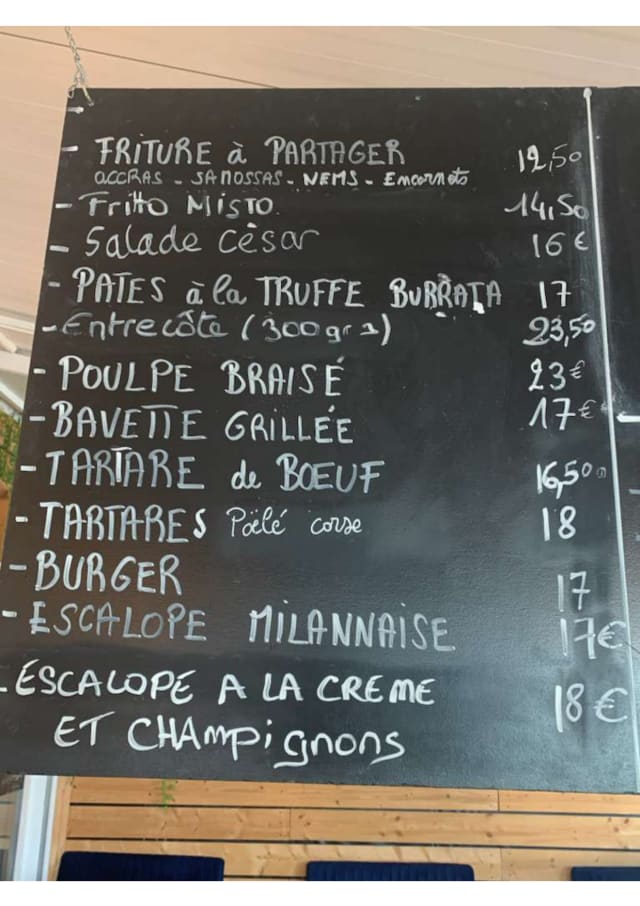 - FRITURE à PARTAGER 12,50
ACCRAS - SAMOSSAS - NEMS - Encornets
- Fritto Misto 14,50
- Salade César 16 €
- PATES à la TRUFFE BURRATA 17
- Entrecôte (300 grs) 23,50
- POULPE BRAISÉ 23 €
- BAVETTE GRILLÉE 17 €
- TARTARE de BŒUF 16,50
- TARTARES Poêlé corse 18
- BURGER 17
- ESCALOPE MILANNAISE 17 €
- ESCALOPE A LA CREME 18 €
ET CHAMPignons